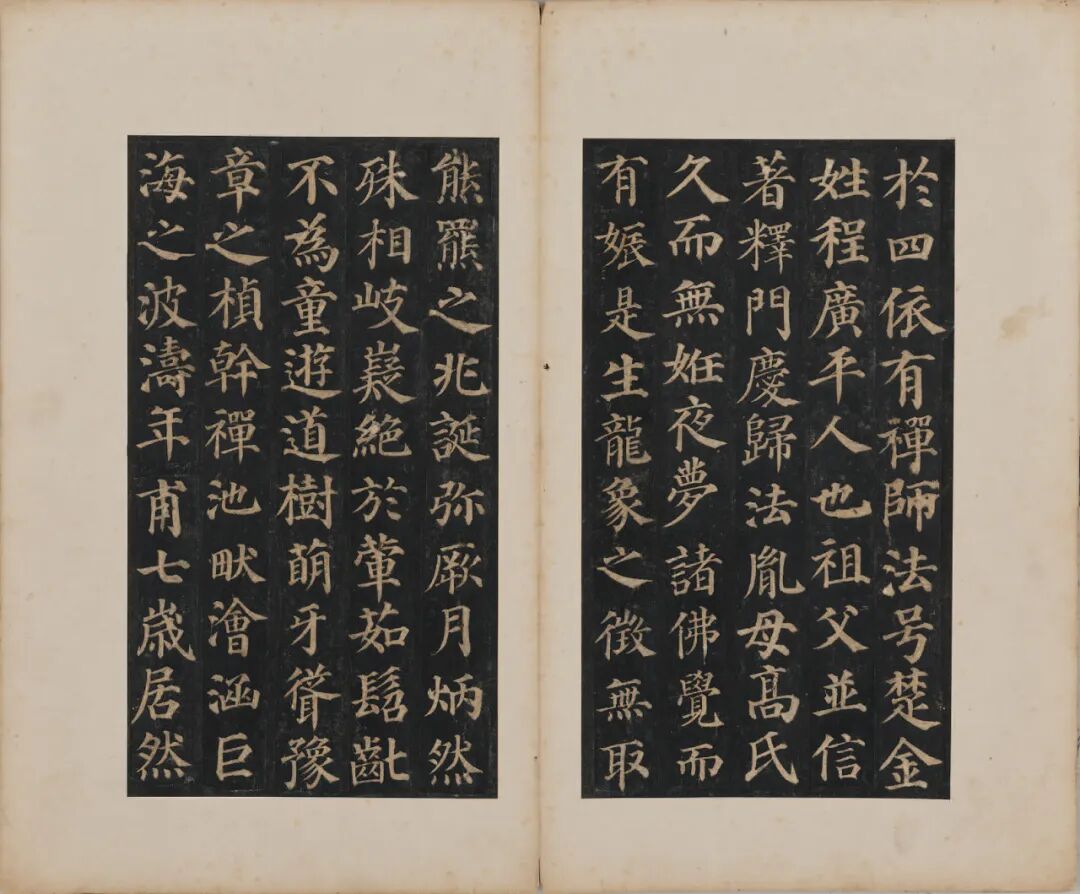 於四依有禪師法号楚金
姓程廣平人也祖父並信
著釋門慶歸法胤母高氏
久而無姙夜夢諸佛覺而
有娠是生龍象之徵無取
熊羆之兆誕弥厥月炳然
殊相岐嶷絕於葷茹髫齔
不為童遊道樹萌牙聳豫
章之楨幹禪池畎澮涵巨
海之波濤年甫七歳居然